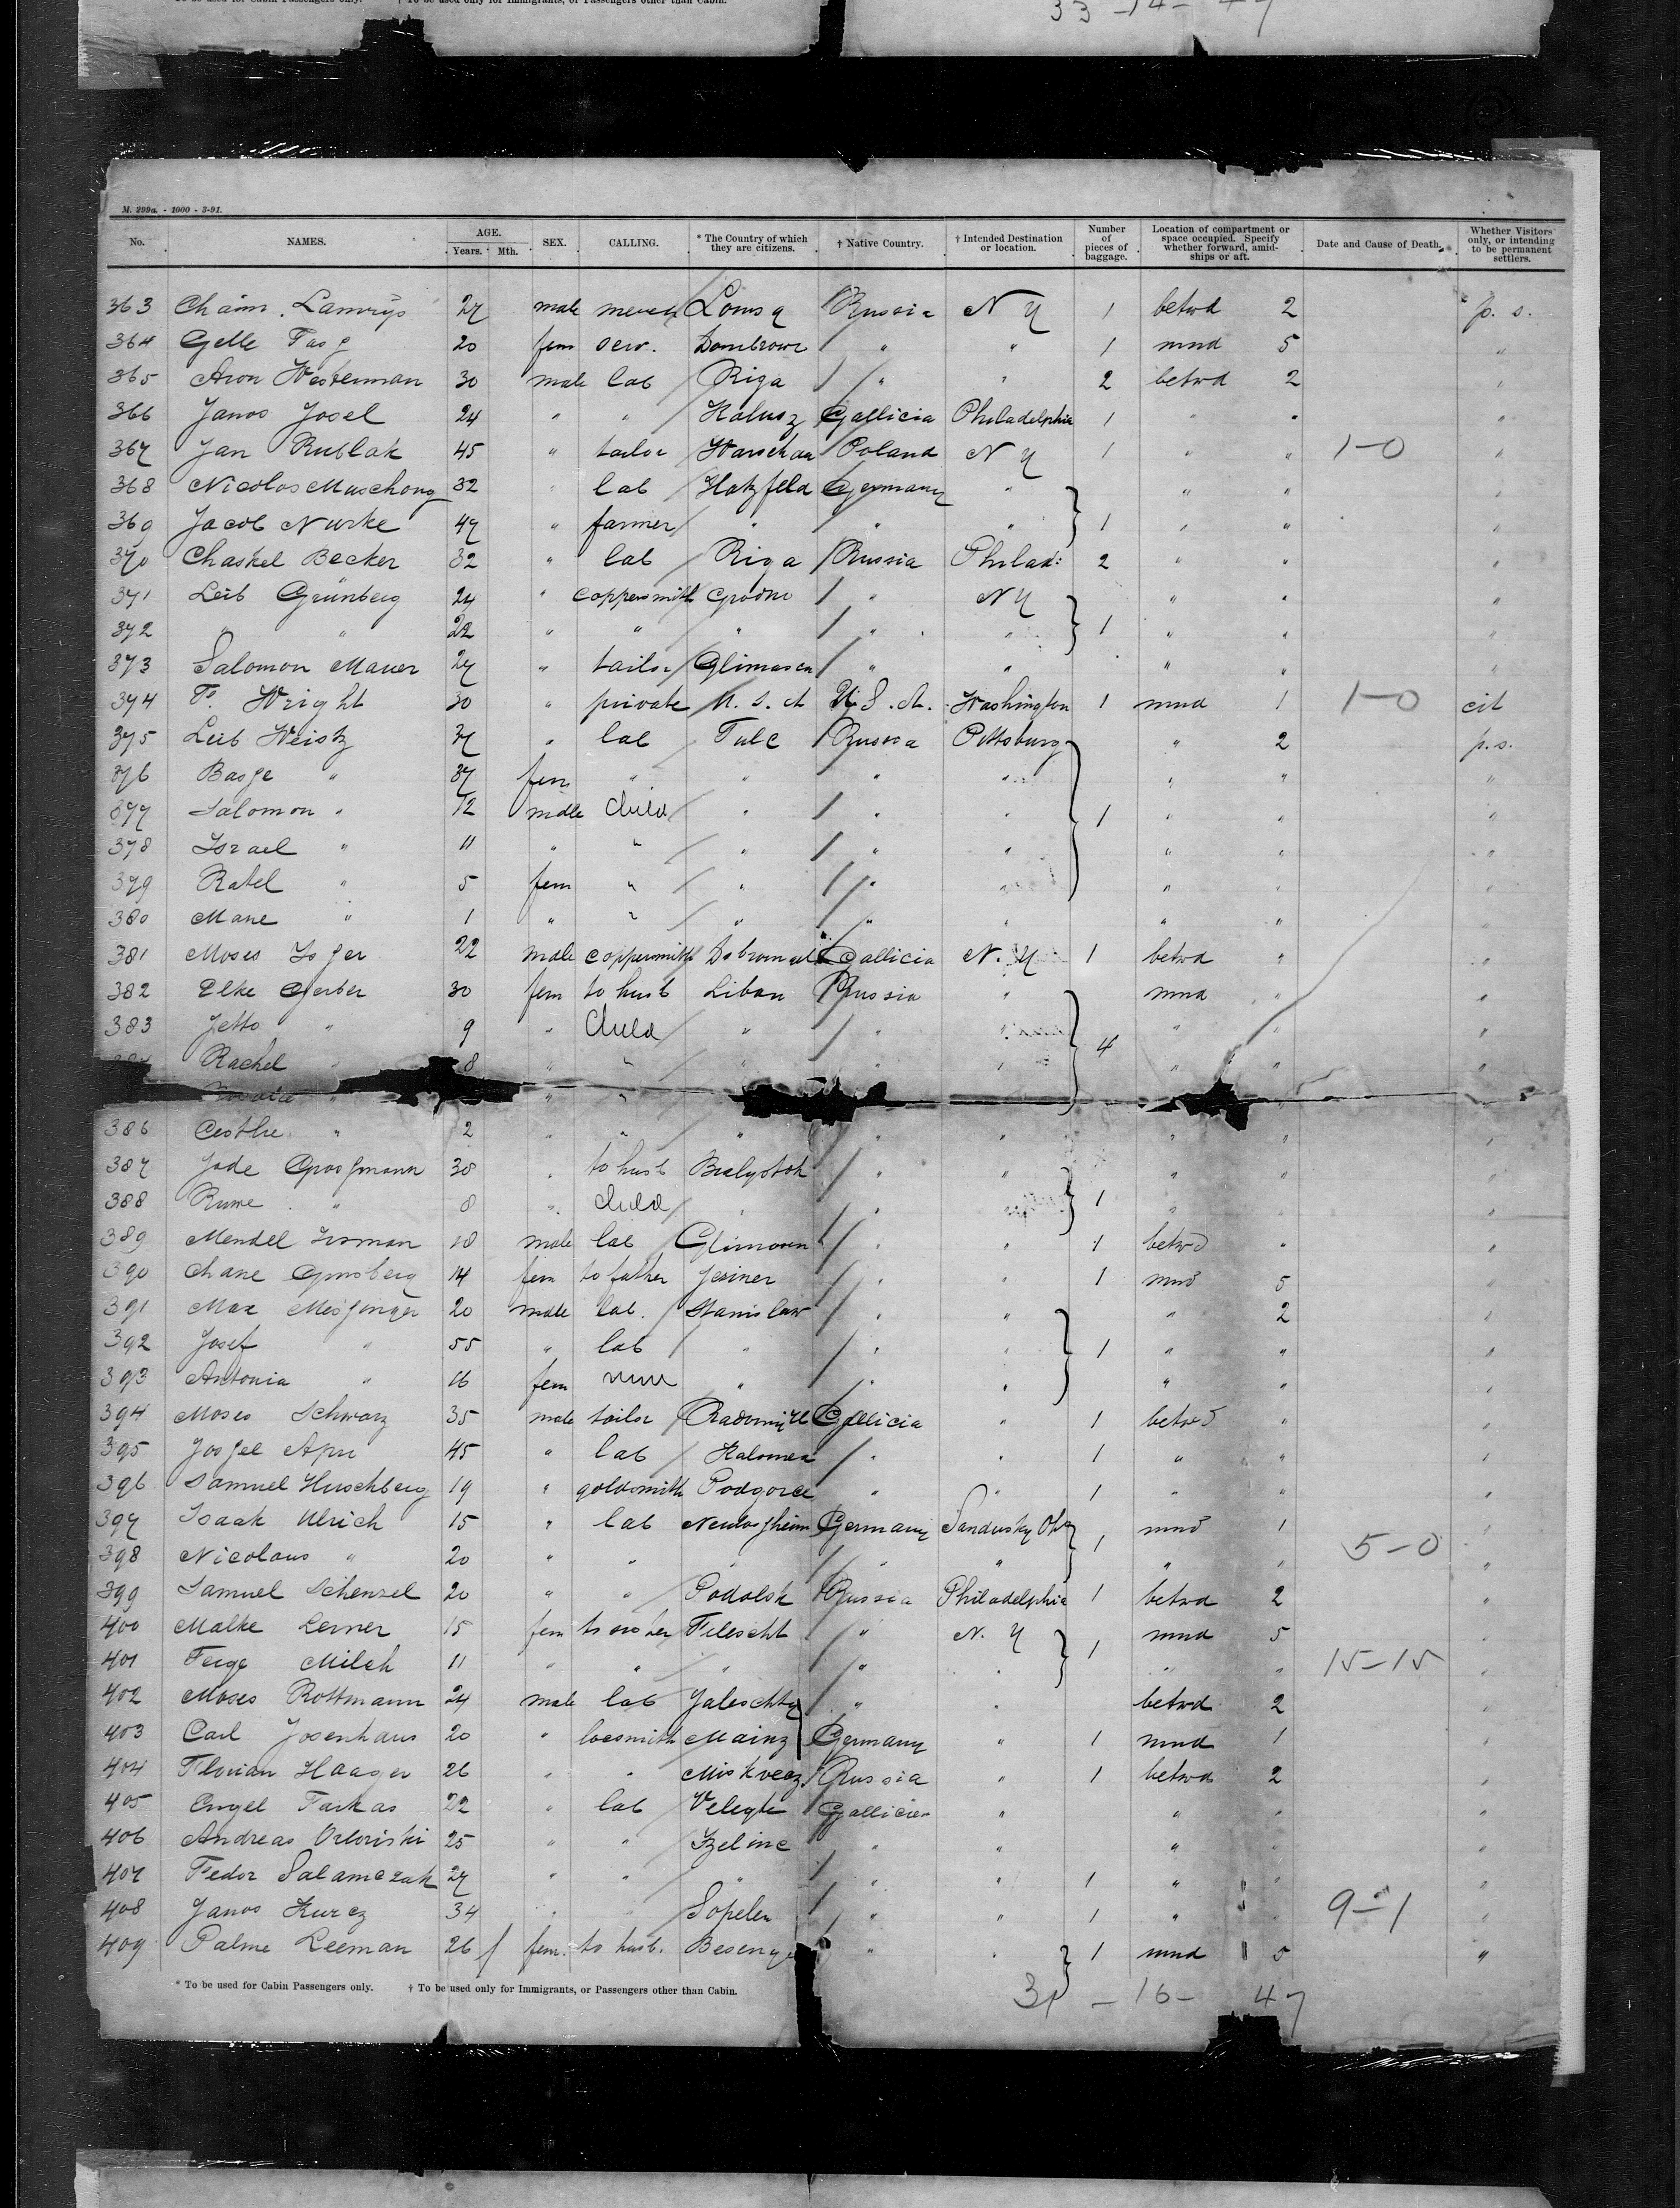 * To be used for Cabin Passengers only. † To be used only for Immigrants, or Passengers other than Cabin.
33 - 14 - 47
M. 299a. - 1000 - 3-91.
No. NAMES. AGE. Years. Mth. SEX. CALLING. * The Country of which they are citizens. † Native Country. † Intended Destination or location. Number of pieces of baggage. Location of compartment or space occupied. Specify whether forward, amidships or aft. Date and Cause of Death. Whether Visitors only, or intending to be permanent settlers.
363 Chaim 27 male merch Russia N Y 1 betwd 2 p. s.
364 Gelle 20 fem serv. Dombrowe " " 1 mnd 5 "
365 Aron Westerman 30 male lab Riga " " 2 betwd 2 "
366 Janos Josel 24 " " Kalusz Gallicia Philadelphia 1 " " "
367 Jan Rublak 45 " tailor Warschau Poland N Y 1 " " 1-0 "
368 Nicolos Muschong 32 " lab Hatzfeld Germany " " " "
369 Jacob Nurke 47 " farmer " " " 1 " " "
370 Chaskel Becker 32 " lab Riga Russia Philad: 2 " " "
371 Leib Grünberg 24 " coppersmith Grodno " N Y " " "
372 " " 22 " " " " " 1 " " "
373 Salomon Mauer 27 " tailor " " " " "
374 T. Wright 30 " private U. S. A U. S. A. Washington 1 mnd 1 1-0 cit
375 Leib Weistz 37 " lab Tulc Russia Pittsburg " 2 p. s.
376 Basge " 37 fem " " " " " " "
377 Salomon " 12 male child " " " 1 " " "
378 Israel " 11 " " " " " " " "
379 Ratel " 5 fem " " " " " " "
380 Mane " 1 " " " " " " " "
381 Moses 22 male coppersmith Gallicia N. Y 1 betwd " "
382 Elke Gerber 30 fem to husb Libau Russia " mnd " "
383 Jetto " 9 " child " " " 4 " " "
Rachel " 8 " " " " " " " "
386 " 2 " " " " " " " "
387 Jode Grossmann 30 " to husb Bialystok " " " " "
388 Rume " 8 " child " " " 1 " " "
389 Mendel 18 male lab " " 1 betwd " "
390 Chane Ginsberg 14 fem to father Jesiner " " 1 mnd 5 "
391 Max Messinger 20 male lab. Stanislaw " " " 2 "
392 Josef " 55 " lab " " " 1 " " "
393 Antonia " 16 fem " " " " " "
394 Moses Schwarz 35 male tailor Gallicia " 1 betwd " "
395 45 " lab Kalomea " " 1 " " "
396 Samuel Hirschberg 19 " goldsmith Podgorce " " 1 " " "
397 Isaak Ulrich 15 " lab Germany Sandusky Oh 1 mnd 1 "
398 Nicolaus " 20 " " " " " " " 5-0 "
399 Samuel Schenzel 20 " " Podolsk Russia Philadelphia 1 betwd 2 "
400 Malke Lerner 15 fem Filescht " N. Y 1 mnd 5 "
401 Feige Milch 11 " " " " " " " 15-15 "
402 Moses Rottmann 24 male lab " " betwd 2 "
403 Carl Josenhaus 20 " locsmith Mainz Germany " 1 mnd 1 "
404 Florian Haager 26 " " Miskvecz Russia " 1 betwd 2 "
405 Engel Farkas 22 " lab Gallicien " " " "
406 Andreas Orloviski 25 " " " " " "
407 Fedor Salamczak 27 " " " " " 1 " " "
408 Janos Kurcz 34 " " Sopelen " " 1 " " 9-1 "
409 Palme Leeman 26 fem. to husb. " " 1 mnd 5 "
* To be used for Cabin Passengers only. † To be used only for Immigrants, or Passengers other than Cabin.
31 - 16 - 47